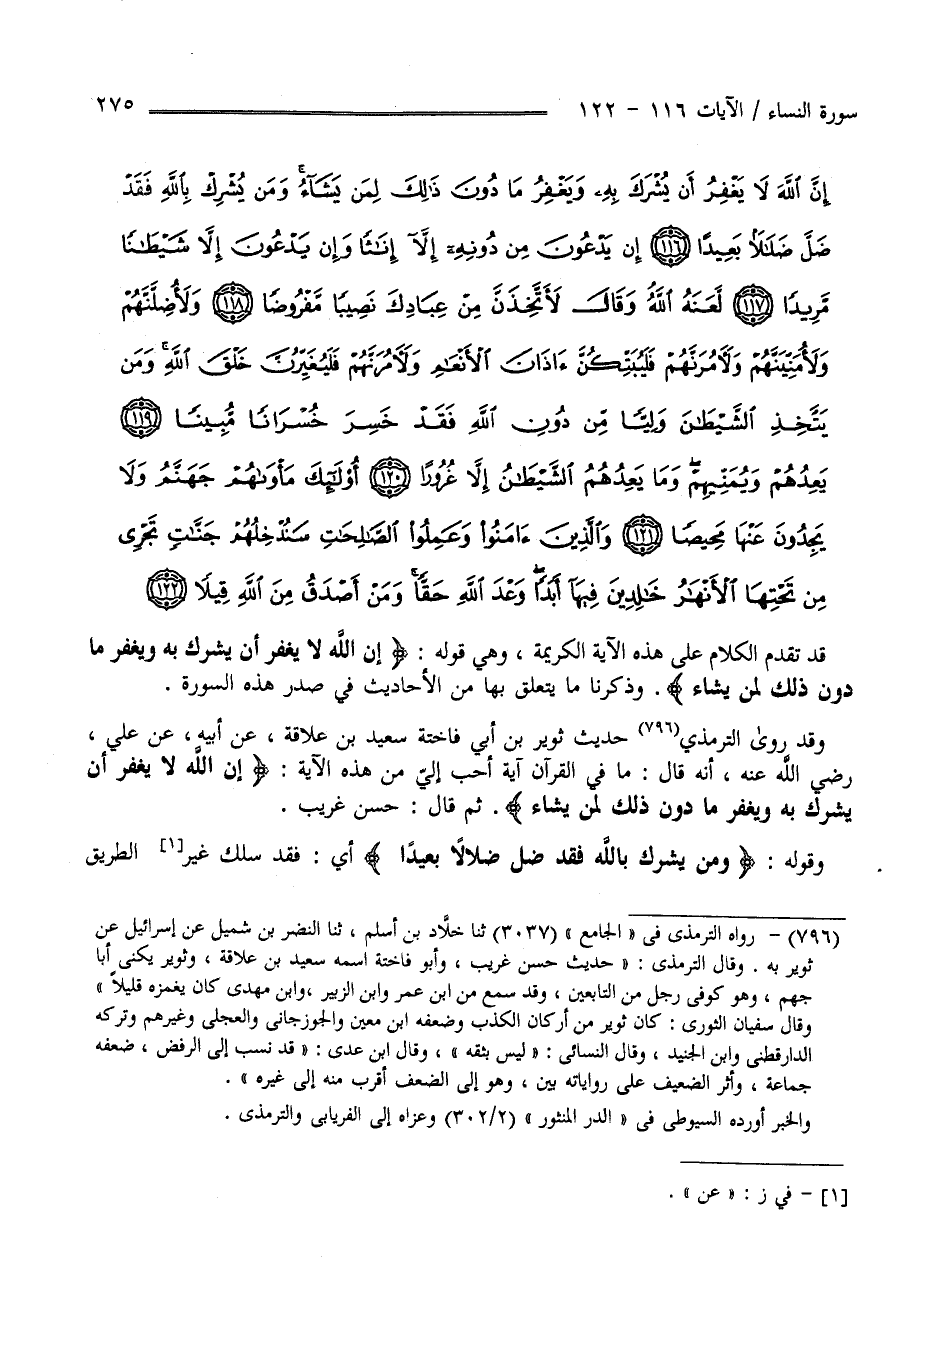 سورة النساء / الآيات ١١٦ - ١٢٢ ٢٧٥
إِنَّ ٱللَّهَ لَا يَغْفِرُ أَن يُشْرَكَ بِهِۦ وَيَغْفِرُ مَا دُونَ ذَٰلِكَ لِمَن يَشَآءُ ۚ وَمَن يُشْرِكْ بِٱللَّهِ فَقَدْ
ضَلَّ ضَلَٰلًۢا بَعِيدًا ﴿١١٦﴾ إِن يَدْعُونَ مِن دُونِهِۦٓ إِلَّآ إِنَٰثًا وَإِن يَدْعُونَ إِلَّا شَيْطَٰنًا
مَّرِيدًا ﴿١١٧﴾ لَّعَنَهُ ٱللَّهُ وَقَالَ لَأَتَّخِذَنَّ مِنْ عِبَادِكَ نَصِيبًا مَّفْرُوضًا ﴿١١٨﴾ وَلَأُضِلَّنَّهُمْ
وَلَأُمَنِّيَنَّهُمْ وَلَآمُرَنَّهُمْ فَلَيُبَتِّكُنَّ ءَاذَانَ ٱلْأَنْعَٰمِ وَلَآمُرَنَّهُمْ فَلَيُغَيِّرُنَّ خَلْقَ ٱللَّهِ ۚ وَمَن
يَتَّخِذِ ٱلشَّيْطَٰنَ وَلِيًّا مِّن دُونِ ٱللَّهِ فَقَدْ خَسِرَ خُسْرَانًا مُّبِينًا ﴿١١٩﴾
يَعِدُهُمْ وَيُمَنِّيهِمْ ۖ وَمَا يَعِدُهُمُ ٱلشَّيْطَٰنُ إِلَّا غُرُورًا ﴿١٢٠﴾ أُو۟لَٰٓئِكَ مَأْوَىٰهُمْ جَهَنَّمُ وَلَا
يَجِدُونَ عَنْهَا مَحِيصًا ﴿١٢١﴾ وَٱلَّذِينَ ءَامَنُوا۟ وَعَمِلُوا۟ ٱلصَّٰلِحَٰتِ سَنُدْخِلُهُمْ جَنَّٰتٍ تَجْرِى
مِن تَحْتِهَا ٱلْأَنْهَٰرُ خَٰلِدِينَ فِيهَآ أَبَدًا ۖ وَعْدَ ٱللَّهِ حَقًّا ۚ وَمَنْ أَصْدَقُ مِنَ ٱللَّهِ قِيلًا ﴿١٢٢﴾
قد تقدم الكلام على هذه الآية الكريمة ، وهي قوله : ﴿ إن اللَّه لا يغفر أن يشرك به ويغفر ما
دون ذلك لمن يشاء ﴾ . وذكرنا ما يتعلق بها من الأحاديث في صدر هذه السورة .
وقد روىٰ الترمذي(٧٩٦) حديث ثوير بن أبي فاختة سعيد بن علاقة ، عن أبيه ، عن علي ،
رضي اللَّه عنه ، أنه قال : ما في القرآن آية أحب إليّ من هذه الآية : ﴿ إن اللَّه لا يغفر أن
يشرك به ويغفر ما دون ذلك لمن يشاء ﴾ . ثم قال : حسن غريب .
وقوله : ﴿ ومن يشرك باللَّه فقد ضل ضلالًا بعيدًا ﴾ أي : فقد سلك غير[١] الطريق
(٧٩٦) - رواه الترمذى فى « الجامع » (٣٠٣٧) ثنا خلَّاد بن أسلم ، ثنا النضر بن شميل عن إسرائيل عن
ثوير به . وقال الترمذى : « حديث حسن غريب ، وأبو فاختة اسمه سعيد بن علاقة ، وثوير يكنى أبا
جهم ، وهو كوفى رجل من التابعين ، وقد سمع من ابن عمر وابن الزبير ،وابن مهدى كان يغمزه قليلاً »
وقال سفيان الثورى : كان ثوير من أركان الكذب وضعفه ابن معين والجوزجانى والعجلى وغيرهم وتركه
الدارقطنى وابن الجنيد ، وقال النسائى : « ليس بثقه » ، وقال ابن عدى : « قد نسب إلى الرفض ، ضعفه
جماعة ، وأثر الضعيف على رواياته بين ، وهو إلى الضعف أقرب منه إلى غيره » .
والخبر أورده السيوطى فى « الدر المنثور » (٣٠٢/٢) وعزاه إلى الفريابى والترمذى .
[١] - في ز : « عن » .